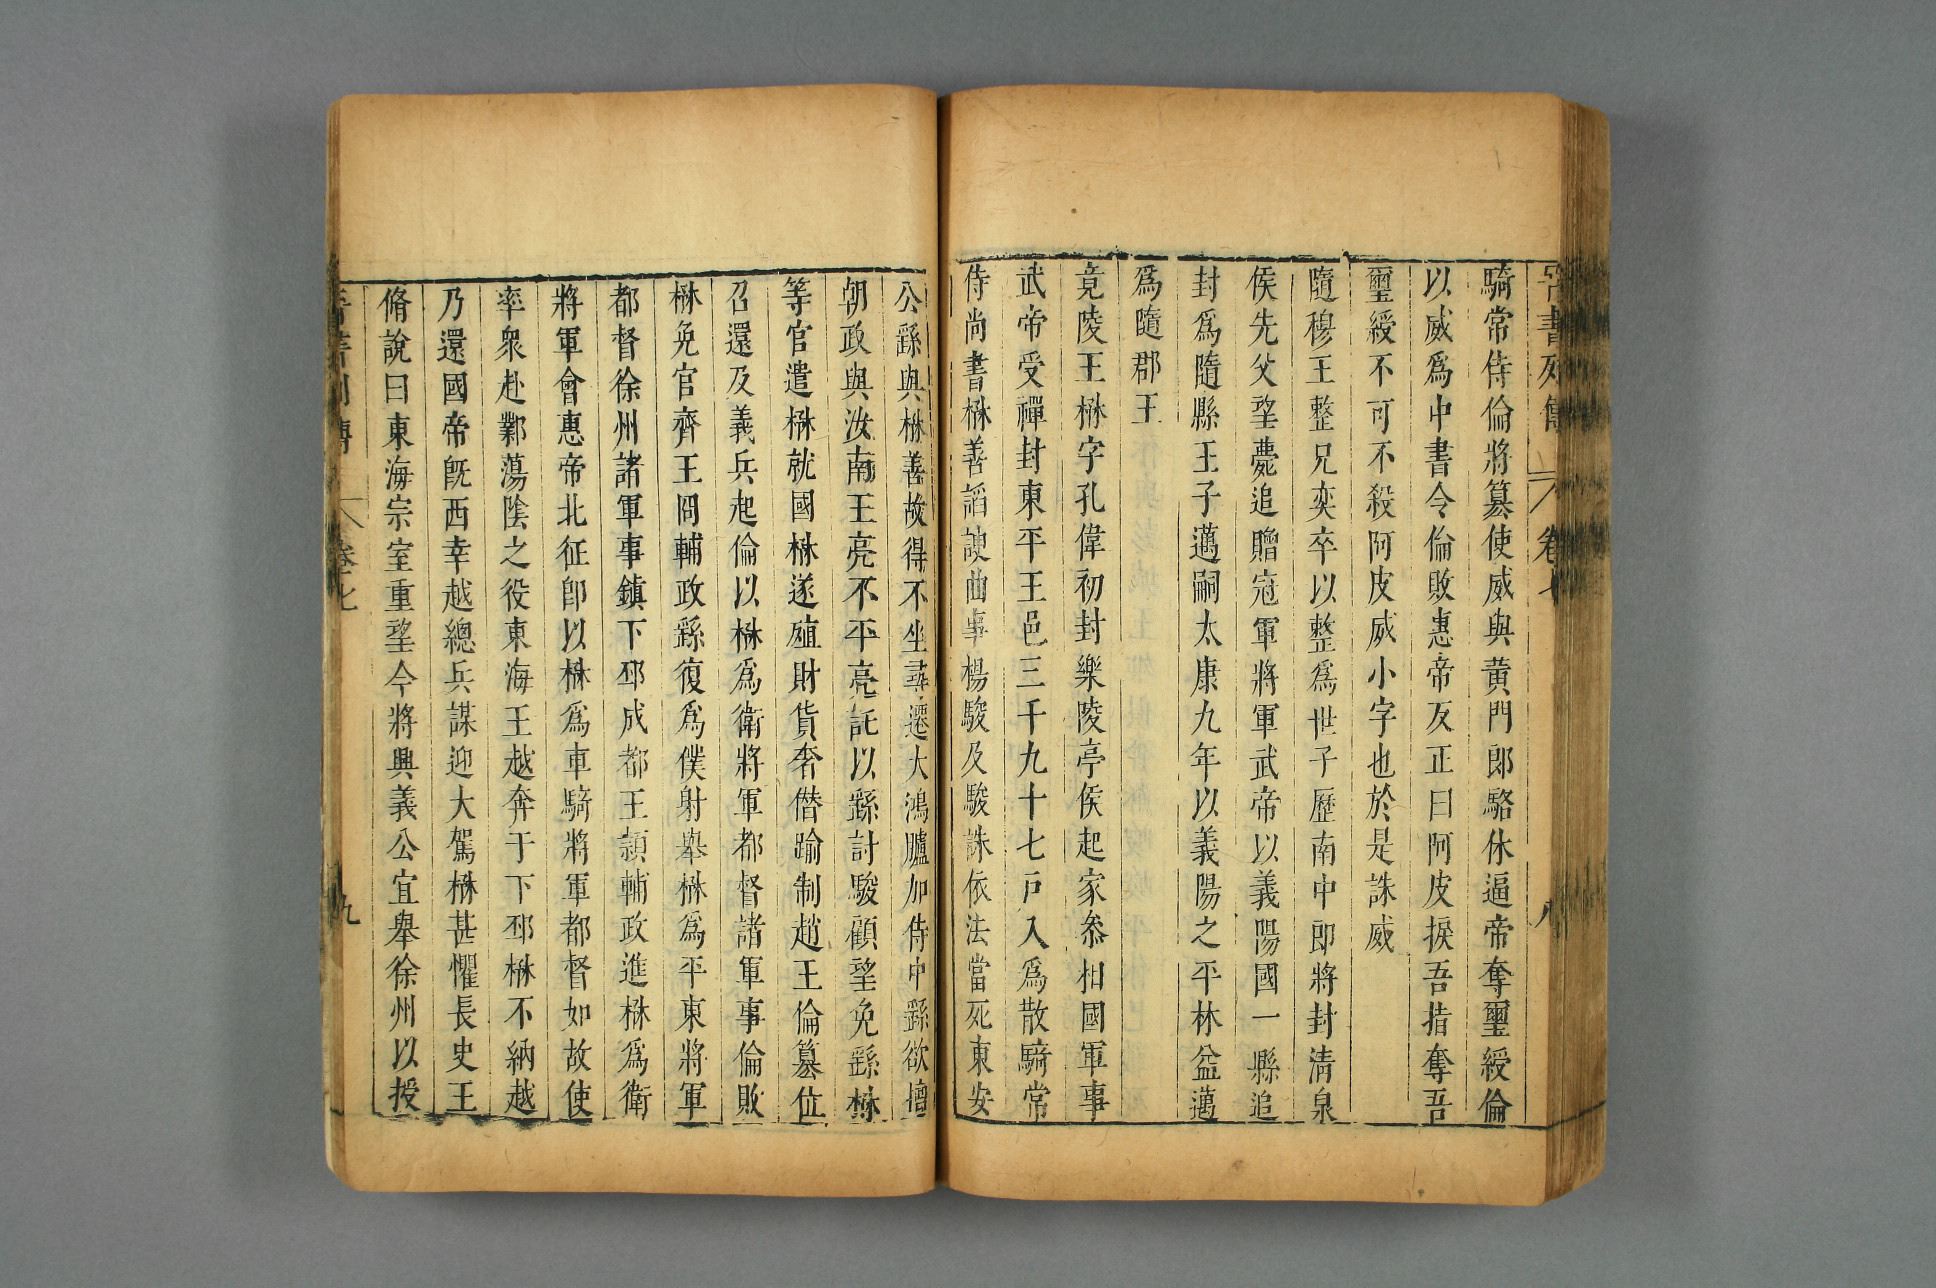 晉書列傳 卷七 八
騎常侍倫將篡使威與黃門郎駱休逼帝奪璽綬倫
以威爲中書令倫敗惠帝反正曰阿皮捩吾指奪吾
璽綬不可不殺阿皮威小字也於是誅威
隨穆王整兄奕卒以整爲世子歷南中郎將封清泉
侯先父望薨追贈冦軍將軍武帝以義陽國一縣追
封爲隨縣王子邁嗣太康九年以義陽之平林益邁
爲隨郡王
竟陵王楙字孔偉初封樂陵亭侯起家叅相國軍事
武帝受禪封東平王邑三千九十七戸入爲散騎常
侍尚書楙善謟諛曲事楊駿及駿誅依法當死東安
公繇與楙善故得不坐尋遷大鴻臚加侍中繇欲擅
朝政與汝南王亮不平亮託以繇討駿顧望免繇楙
等官遣楙就國楙遂殖財貨奢僣踰制趙王倫篡位
召還及義兵起倫以楙爲衛將軍都督諸軍事倫敗
楙免官齊王冏輔政繇復爲僕射舉楙爲平東將軍
都督徐州諸軍事鎮下邳成都王頴輔政進楙爲衛
將軍會惠帝北征卽以楙爲車騎將軍都督如故使
率衆赴鄴蕩陰之役東海王越奔于下邳楙不納越
乃還國帝旣西幸越總兵謀迎大駕楙甚懼長史王
脩說曰東海宗室重望今將興義公宜舉徐州以授
晉書列傳 卷七 九